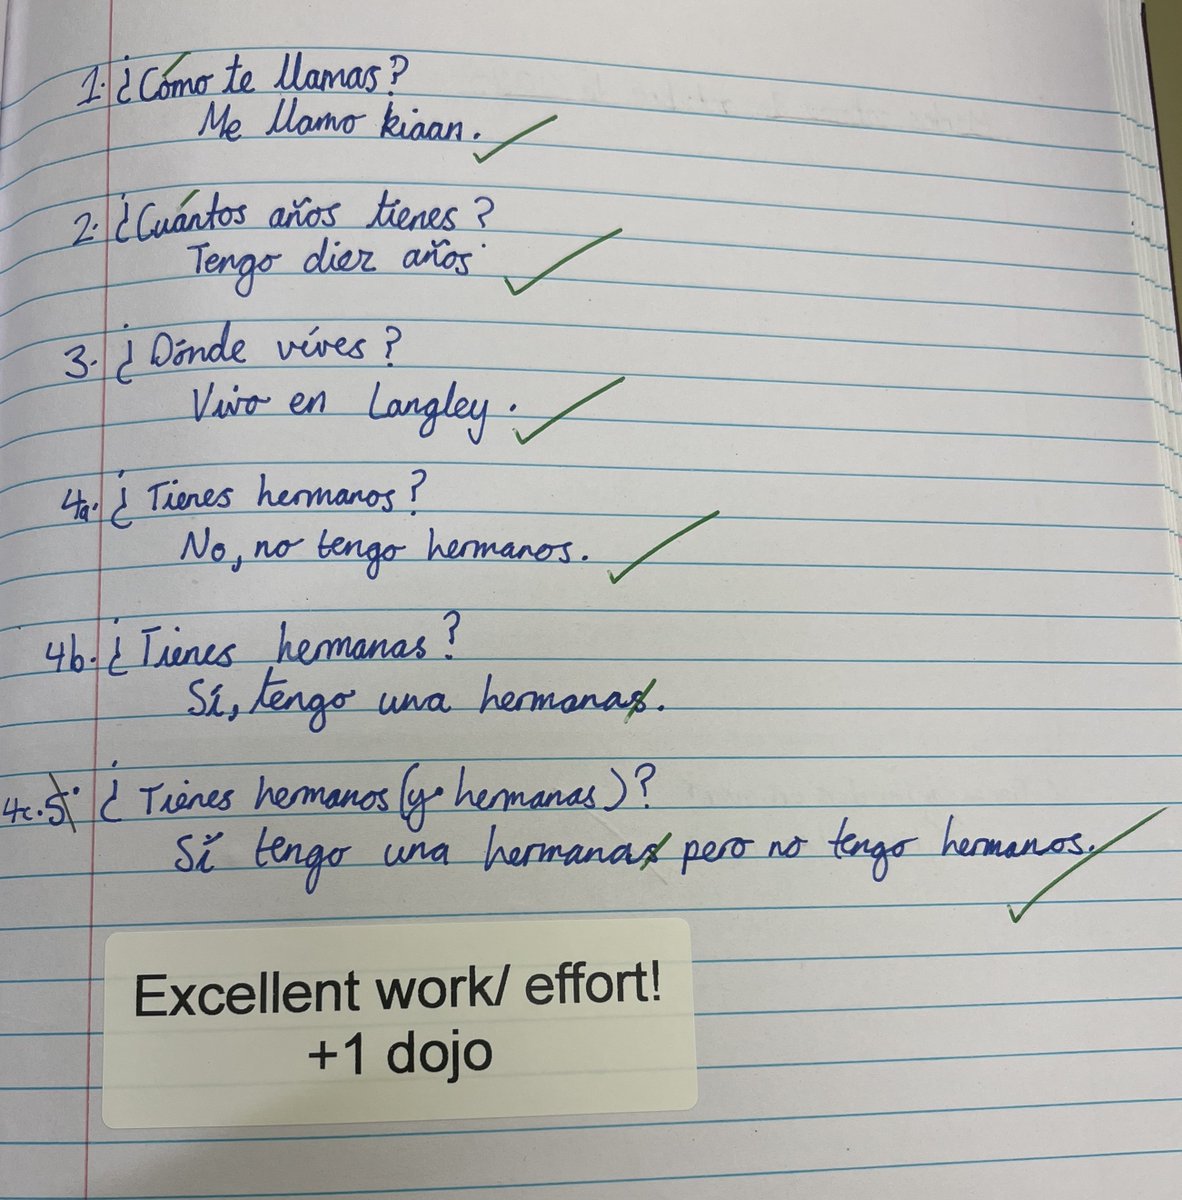 1. ¿Cómo te llamas?
Me llamo kiaan.
2. ¿Cuántos años tienes?
Tengo diez años.
3. ¿Dónde víves?
Vivo en Langley.
4a. ¿Tienes hermanos?
No, no tengo hermanos.
4b. ¿Tienes hermanas?
Sí, tengo una hermanas.
4c. 5. ¿Tienes hermanos (y hermanas)?
Sí tengo una hermanas pero no tengo hermanos.
Excellent work/ effort!
+1 dojo